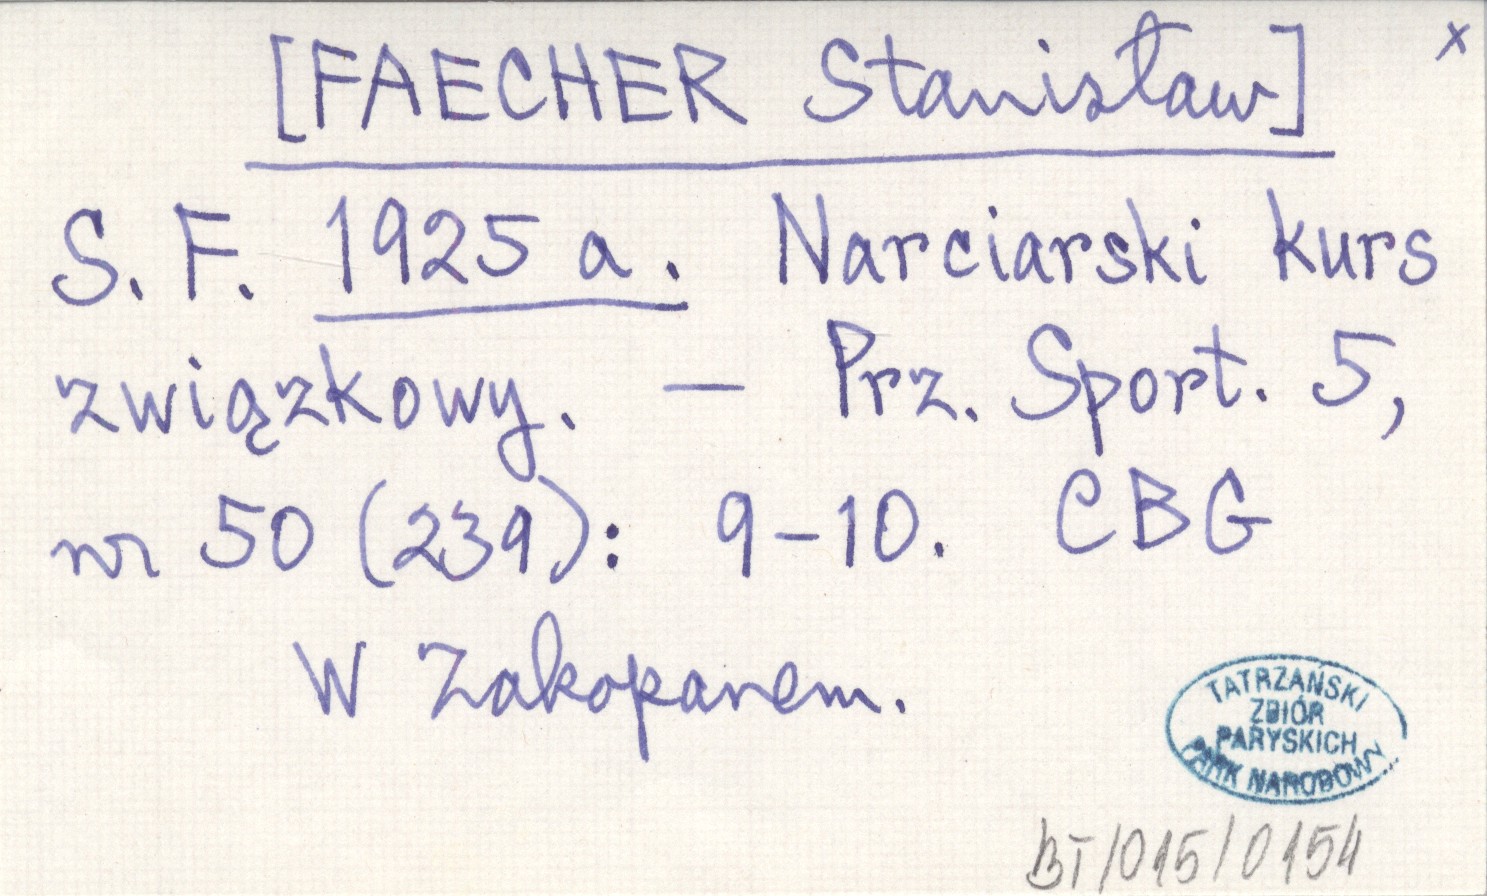 [FAECHER Stanisław] x
S. F. 1925 a. Narciarski kurs
związkowy. — Prz. Sport. 5,
nr 50 (239): 9-10. CBG
W Zakopanem.
TATRZAŃSKI
ZBIÓR
PARYSKICH
PARK NARODOWY
BT/015/0154